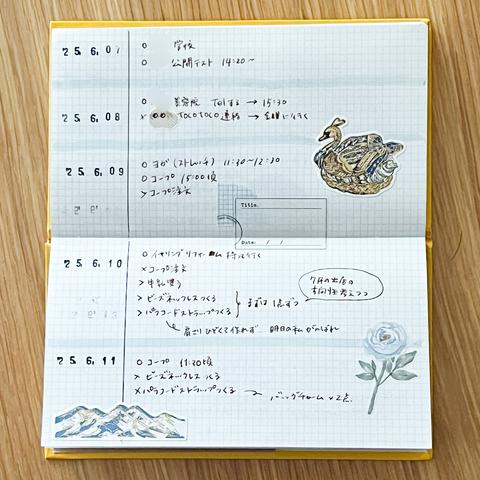 25. 6. 07
○ 学校
○ 公開テスト 14:20〜
25. 6. 08
○ 美容院 Telする → 15:30
× TOCOTOCO連絡 → 金曜に行く
25. 6. 09
○ ヨガ(ストレッチ) 11:30〜12:30
○ コープ 15:00頃
> コープ注文
Title.
Date. / /
25. 6. 10
○ イヤリングリフォーム 持って行く
× コープ注文
> 牛乳買う
> ビーズネックレスつくる
> パラコードストラップつくる
まずは1点ずつ
7月の出店の
方向性考えつつ
肩こりひどくて作れず 明日の私がんばれ
25. 6. 11
○ コープ 11:30頃
> ビーズネックレスつくる
× パラコードストラップつくる → バッグチャーム×2点.